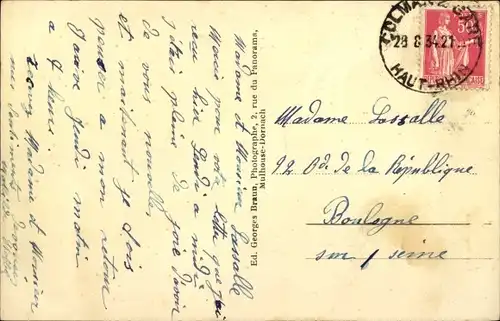 Madame et Monsieur Lassalle
Merci pour votre lettre que j'ai
reçu hier Lundi a midi
j'étais pleine de joie d'avoir
de vous nouvelles
et maintenant je dois
penser a mon retour
J'arrive Jeudi matin
a 9 heures.
recevez Madame et Monsieur
mes
Ed. Georges Braun, Photographe, 2, rue du Panorama,
Mulhouse-Dornach
COLMAR GARE
28 8 34 21
HAUT-RHIN
50c
Madame Lassalle
92 Bd. de la République
Boulogne
sur / seine